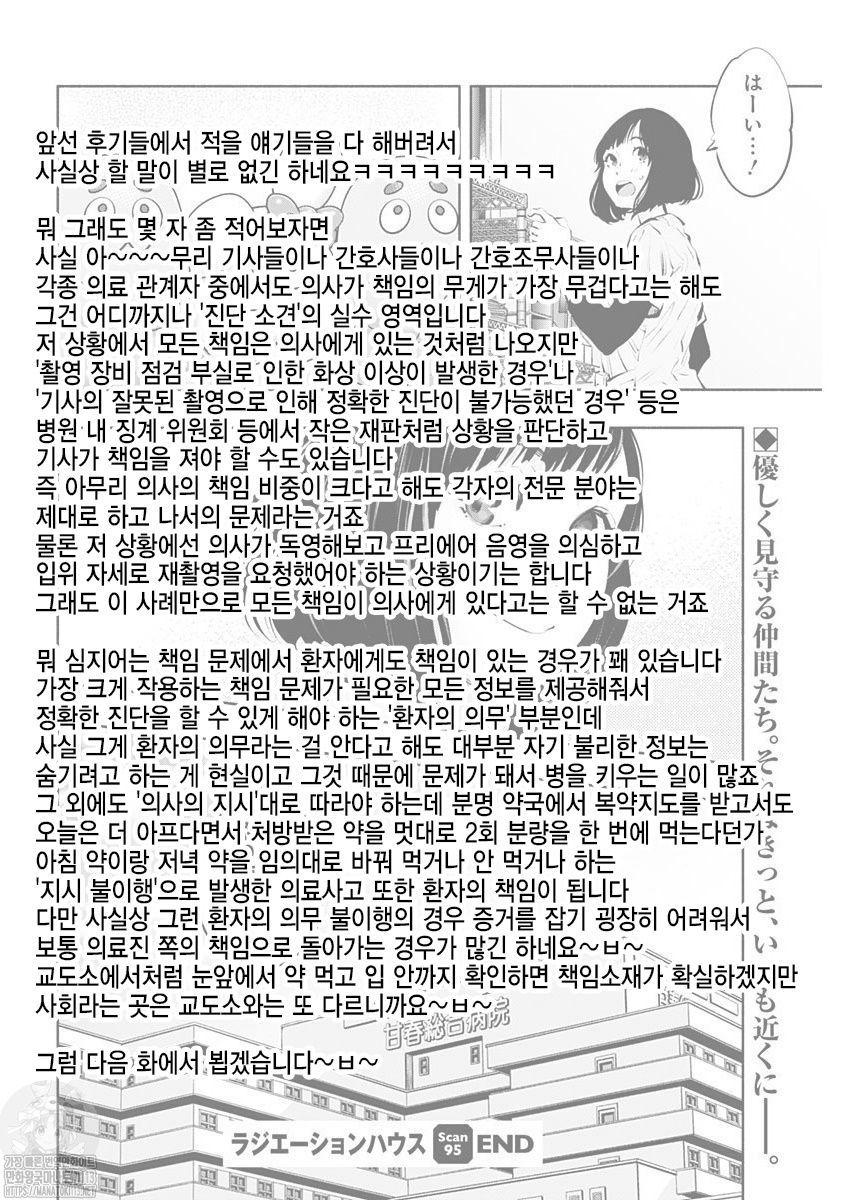 はーい…！
앞선 후기들에서 적을 얘기들을 다 해버려서
사실상 할 말이 별로 없긴 하네요ㅋㅋㅋㅋㅋㅋㅋㅋㅋ
뭐 그래도 몇 자 좀 적어보자면
사실 아~~~무리 기사들이나 간호사들이나 간호조무사들이나
각종 의료 관계자 중에서도 의사가 책임의 무게가 가장 무겁다고는 해도
그건 어디까지나 '진단 소견'의 실수 영역입니다
저 상황에서 모든 책임은 의사에게 있는 것처럼 나오지만
'촬영 장비 점검 부실로 인한 화상 이상이 발생한 경우'나
'기사의 잘못된 촬영으로 인해 정확한 진단이 불가능했던 경우' 등은
병원 내 징계 위원회 등에서 작은 재판처럼 상황을 판단하고
기사가 책임을 져야 할 수도 있습니다
즉 아무리 의사의 책임 비중이 크다고 해도 각자의 전문 분야는
제대로 하고 나서의 문제라는 거죠
물론 저 상황에선 의사가 독영해보고 프리에어 음영을 의심하고
입위 자세로 재촬영을 요청했어야 하는 상황이기는 합니다
그래도 이 사례만으로 모든 책임이 의사에게 있다고는 할 수 없는 거죠
뭐 심지어는 책임 문제에서 환자에게도 책임이 있는 경우가 꽤 있습니다
가장 크게 작용하는 책임 문제가 필요한 모든 정보를 제공해줘서
정확한 진단을 할 수 있게 해야 하는 '환자의 의무' 부분인데
사실 그게 환자의 의무라는 걸 안다고 해도 대부분 자기 불리한 정보는
숨기려고 하는 게 현실이고 그것 때문에 문제가 돼서 병을 키우는 일이 많죠
그 외에도 '의사의 지시'대로 따라야 하는데 분명 약국에서 복약지도를 받고서도
오늘은 더 아프다면서 처방받은 약을 멋대로 2회 분량을 한 번에 먹는다던가
아침 약이랑 저녁 약을 임의대로 바꿔 먹거나 안 먹거나 하는
'지시 불이행'으로 발생한 의료사고 또한 환자의 책임이 됩니다
다만 사실상 그런 환자의 의무 불이행의 경우 증거를 잡기 굉장히 어려워서
보통 의료진 쪽의 책임으로 돌아가는 경우가 많긴 하네요~ㅂ~
교도소에서처럼 눈앞에서 약 먹고 입 안까지 확인하면 책임소재가 확실하겠지만
사회라는 곳은 교도소와는 또 다르니까요~ㅂ~
그럼 다음 화에서 뵙겠습니다~ㅂ~
◆優しく見守る仲間たち。そ きっと、い も近くに――。
甘春総合病院
ラジエーションハウス Scan 95 END
가장 빠른 번역만화사이트
HTTPS://MANATOKI113.NET